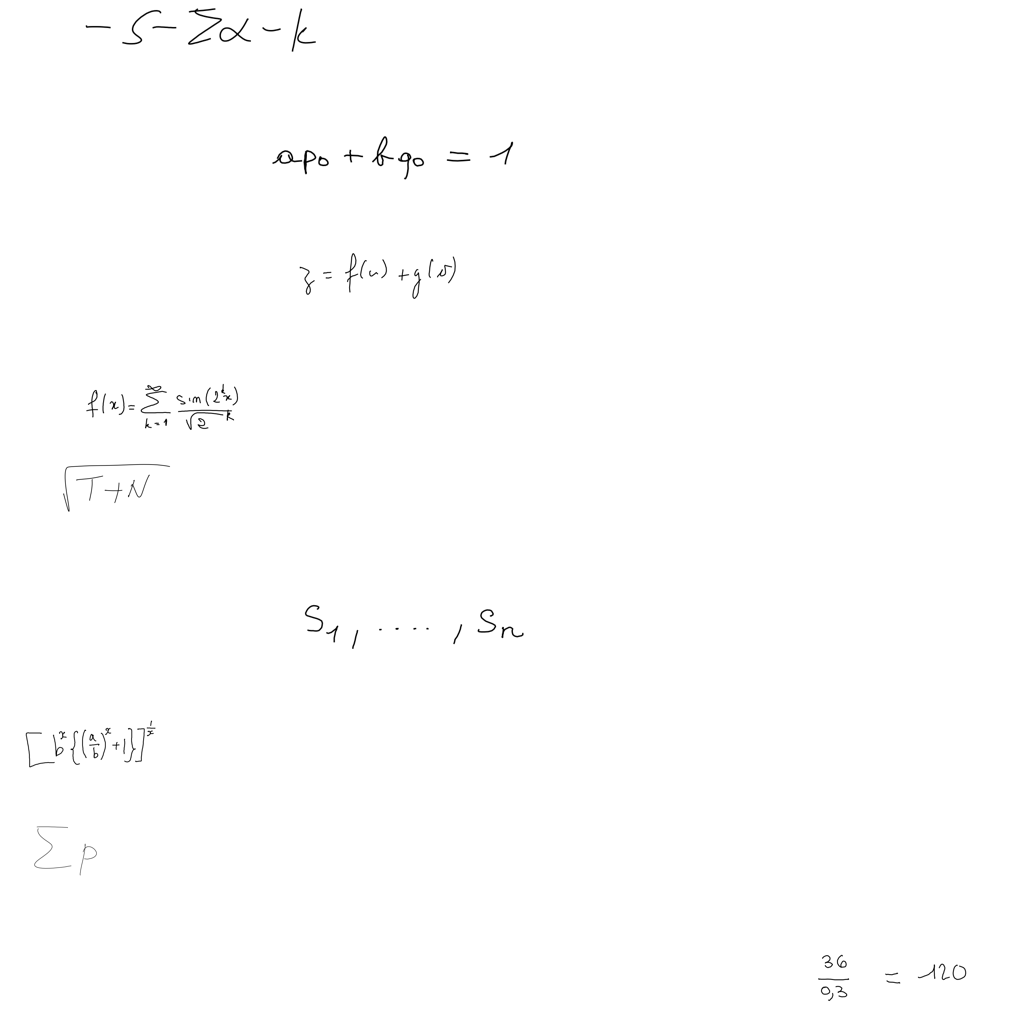 - S - Σα - k
ap₀ + bq₀ = 1
z = f(u) + g(v)
f(x) = \sum_{k=1}^{∞} \frac{sin(2^k x)}{\sqrt{2}^k}
\sqrt{T+N}
S₁, ...., Sₙ
[b^x {(\frac{a}{b})^x + 1}]^{\frac{1}{x}}
Σp
\frac{36}{0,3} = 120